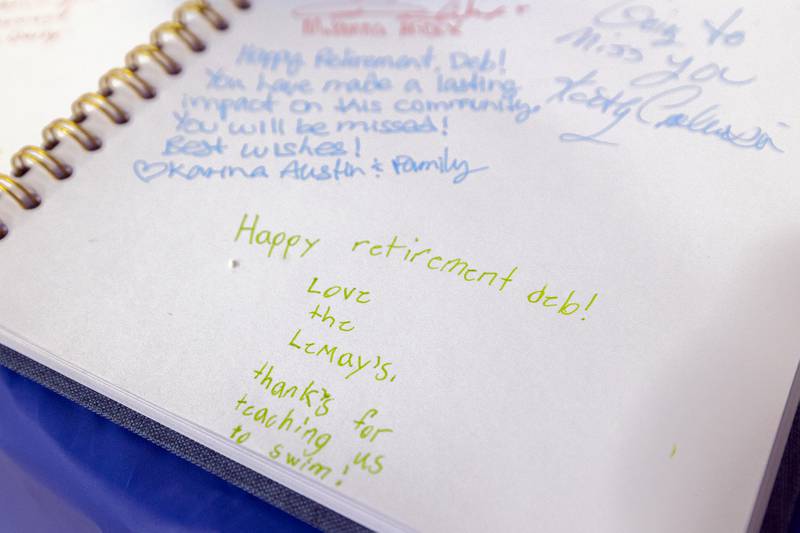 Going to
Miss you
Happy Retirement, Deb!
You have made a lasting
impact on this community.
You will be missed!
Best wishes!
♡Karina Austin & Family
Happy retirement deb!
Love
the
LeMay's.
thanks for
teaching us
to swim!